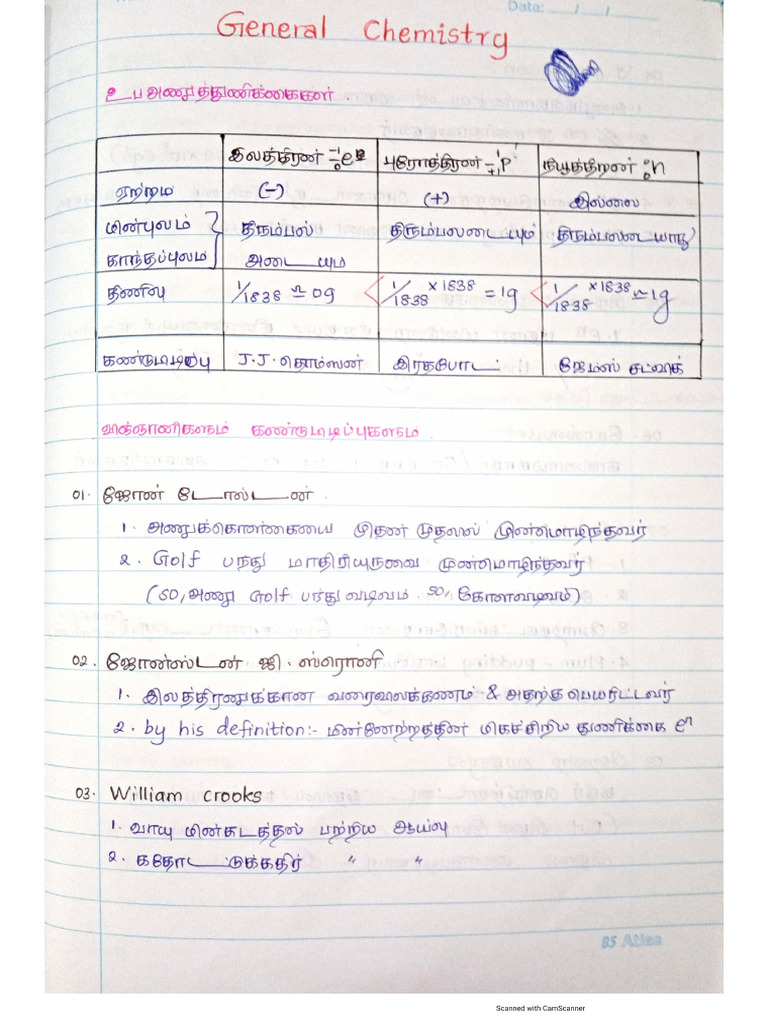 Date: __/__/__
General Chemistry
உப அணுத்துணிக்கைகள்.
இலத்திரன் ⁻¹₀e புரோத்திரன் ¹₊₁P நியூத்திரன் ¹₀n
ஏற்றம் (-) (+) இல்லை
மின்புலம் காந்தப்புலம் திரும்பல் அடையும் திரும்பலடையும் திரும்பலடையாது
திணிவு 1/1838 ≃ 0g 1/1838 × 1838 = 1g 1/1838 × 1838 ≃ 1g
கண்டுபிடிப்பு J.J. தொம்சன் இரதபோட் ஜேம்ஸ் சட்விக்
விஞ்ஞானிகளும் கண்டுபிடிப்புகளும்.
01. ஜோன் டோல்டன்.
1. அணுக்கொள்கையை முதன் முதலில் முன்மொழிந்தவர்
2. Golf பந்து மாதிரியுருவை முன்மொழிந்தவர்
(SO, அணு Golf பந்து வடிவம். SO, கோளவடிவம்)
02. ஜோன்ஸ்டன் ஜி. ஸ்ரொனி
1. இலத்திரனுக்கான வரைவிலக்கணம் & அதற்கு பெயரிட்டவர்
2. by his definition:- மின்னேற்றத்தின் மிகச்சிறிய துணிக்கை eⁿ
03. William crooks
1. வாயு மின்கடத்தல் பற்றிய ஆய்வு
2. கதோட்டுக்கதிர் " "
B5 Atlas
Scanned with CamScanner